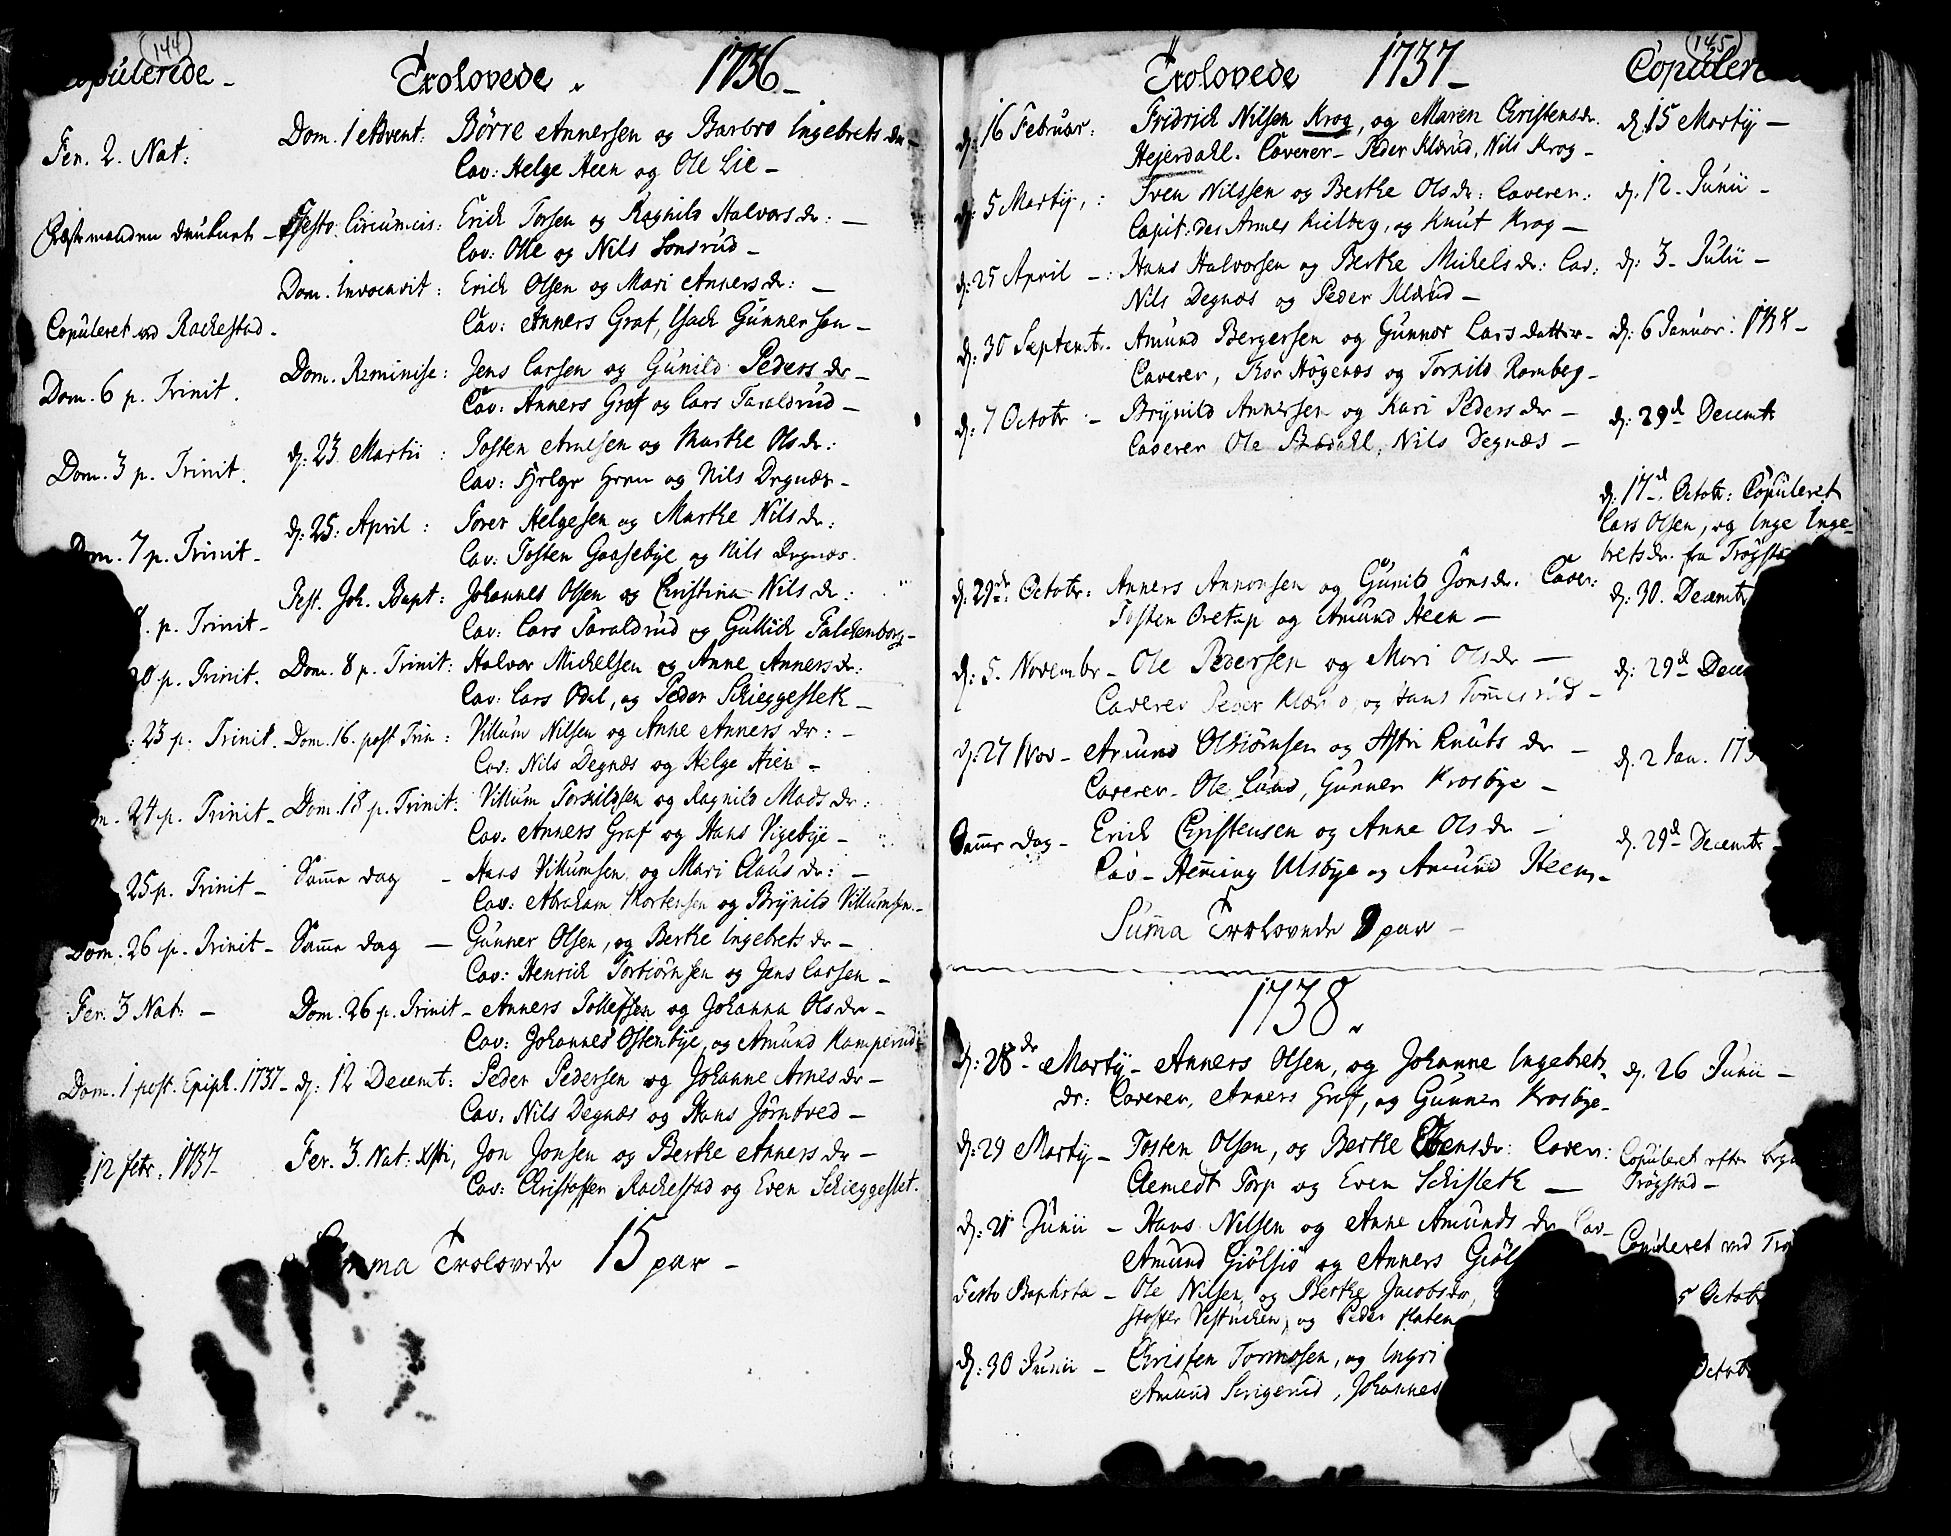 (144)
Copulerede _
Trolovede . 1736_
Fer. 2. Nat:
Dom. 1 Advent: Börre Annersen og Barbro Ingebrets dr _
Cav: Helge Heen og Ole Lie _
Festo Circumcis: Erich Torsen og Ragnild Halvors dr: _
Cav: Olle og Nils Sonsrud _
Dom. Invocavit: Erich Olsen og Mari Anners dr: _
Copuleret ved Rackestad _
Cav: Anners Graf, Isach Gunnersen _
Dom. 6 p. Trinit.
Dom. Reminise: Jens Larsen og Gunild Peders dr _
Cav: Anners Graf og Lars Taraldrud _
Dom. 3 p. Trinit.
d: 23 Martii: Tosten Arnesen og Marthe Ols dr:
Cav: Helge Heen og Nils Degnæs _
Dom. 7 p. Trinit _
d: 25 April: Torer Helgesen og Marthe Nils dr:
Cav: Tosten Gaasebye og Nils Degnæs
p. Trinit _
Fest. Joh. Bapt: Johannes Olsen og Christina Nils dr:
Cav: Lars Taraldrud og Gullich Falckenborg _
20 p. Trinit. Dom. 8 p. Trinit: Halvor Michelsen og Anne Anners dr:
Cav: Lars Odal, og Peder Schieggesleth _
23 p. Trinit. Dom. 16. post Trin: Villum Nilsen og Anne Anners dr: _
Cav: Nils Degnæs og Helge Hien _
24 p. Trinit _ Dom. 18 p. Trinit: Villum Torkildsen og Ragnild Mads dr:
Cav. Anners Graf og Hans Vigebye _
25 p. Trinit _ Samme dag _ Hans Villumsen og Mari Claus dr: _
Cav: Abraham Mortensen og Brÿnild Villumsen _
Dom. 26 p. Trinit _ Samme dag _ Gunner Olsen, og Berthe Ingebrets dr _
Cav: Henrich Torbiörnsen og Jens Larsen _
Fer. 3 Nat: _ Dom. 26 p. Trinit _ Anners Tollefsen og Johanna Ols dr _
Cav: Johannes Ostenbye, og Amund Kamperud
Dom. 1 post. Epiph. 1737 _ d: 12 Decembr: Peder Pedersen og Johanne Arnes dr _
Cav: Nils Degnæs og Hans Jörntved _
12 febr. 1737 _ Fer. 3. Nat: Xsti, Jon Jonsen og Berthe Anners dr _
Cav: Christoffer Rackestad og Even Schieggeslet.
Summa Trolovede 15 par _
(145)
Trolovede 1737 _ Copuler
d: 16 Februar: Fridrich Nilsen Krog, og Maren Christensdr. d. 15 Martÿ _
Hejerdahl. Caverer _ Peder Klærud, Nils Krog _
d: 5 Martÿ,: Sven Nilssen og Berthe Olsdr: Caverer: d: 12. Junii _
Capit: des Armes Kielberg, og Knut Krog _
d: 25 April _: Hans Halvorsen og Berthe Michels dr: Cav: d: 3 _ Julii _
Nils Degnæs og Peder Klærud _
d: 30 Septembr. Amund Bergersen og Gunnor Lars datter _ d: 6 Januar: 1738 _
Caverer, Tor Högenæs og Torkild Romberg _
d: 7 Octobr: _ Brÿnild Annersen og Kari Peders dr _ d: 29d Decembr
Caverer Ole Bredahl, Nils Degnæs _
d: 17d. Octobr: Copuleret
Lars Olsen, og Inge Inge-
bretsdr. fra Trögsta
d: 29de: Octobr: Anners Annonsen og Gunild Jonsdr. Caver: d: 30. Decembr
Tosten Oretap og Amund Heen _
d: 5. Novembr _ Ole Pedersen og Mari Olsdr _ d: 29d Dece
Caverer Peder Klærud, og Hans Tommesrud _
d: 27 Nov _ Amund Olbiörnsen og Astri Knuts dr _ d. 2 Jan. 173
Caverer _ Ole Lund, Gunner Krosbye _
Samme dag _ Erich Christensen og Anne Ols dr _ d. 29d Decembr _
Cav _ Heming Ulsbye og Amund Heen _
Summa Trolovede 9 par _
1738.
d: 28de Martÿ _ Anners Olsen, og Johanne Ingebrets d. 26 Junii _
dr: Caverer, Anners Graf, og Gunner Krosbye _
d: 29 Martÿ _ Tosten Olsen, og Berthe Evensdr: Caver: Copuleret efter
Clemedt Torp og Even Schisleth _ Trögstad _
d: 21 Junii _ Hans Nilsen og Anne Amunds dr Cav _ Copuleret ved Trö
Amund Giölsiö og Anners Giöl
Festo Baptista _ Ole Nilsen, og Berthe Jacobsdr, 5 Octobr
stoffer Vestuchen, og Peder flaten
d: 30 Junii _ Christen Tormosen, og Ingri Octobr
Amund Serigerud, Johannes